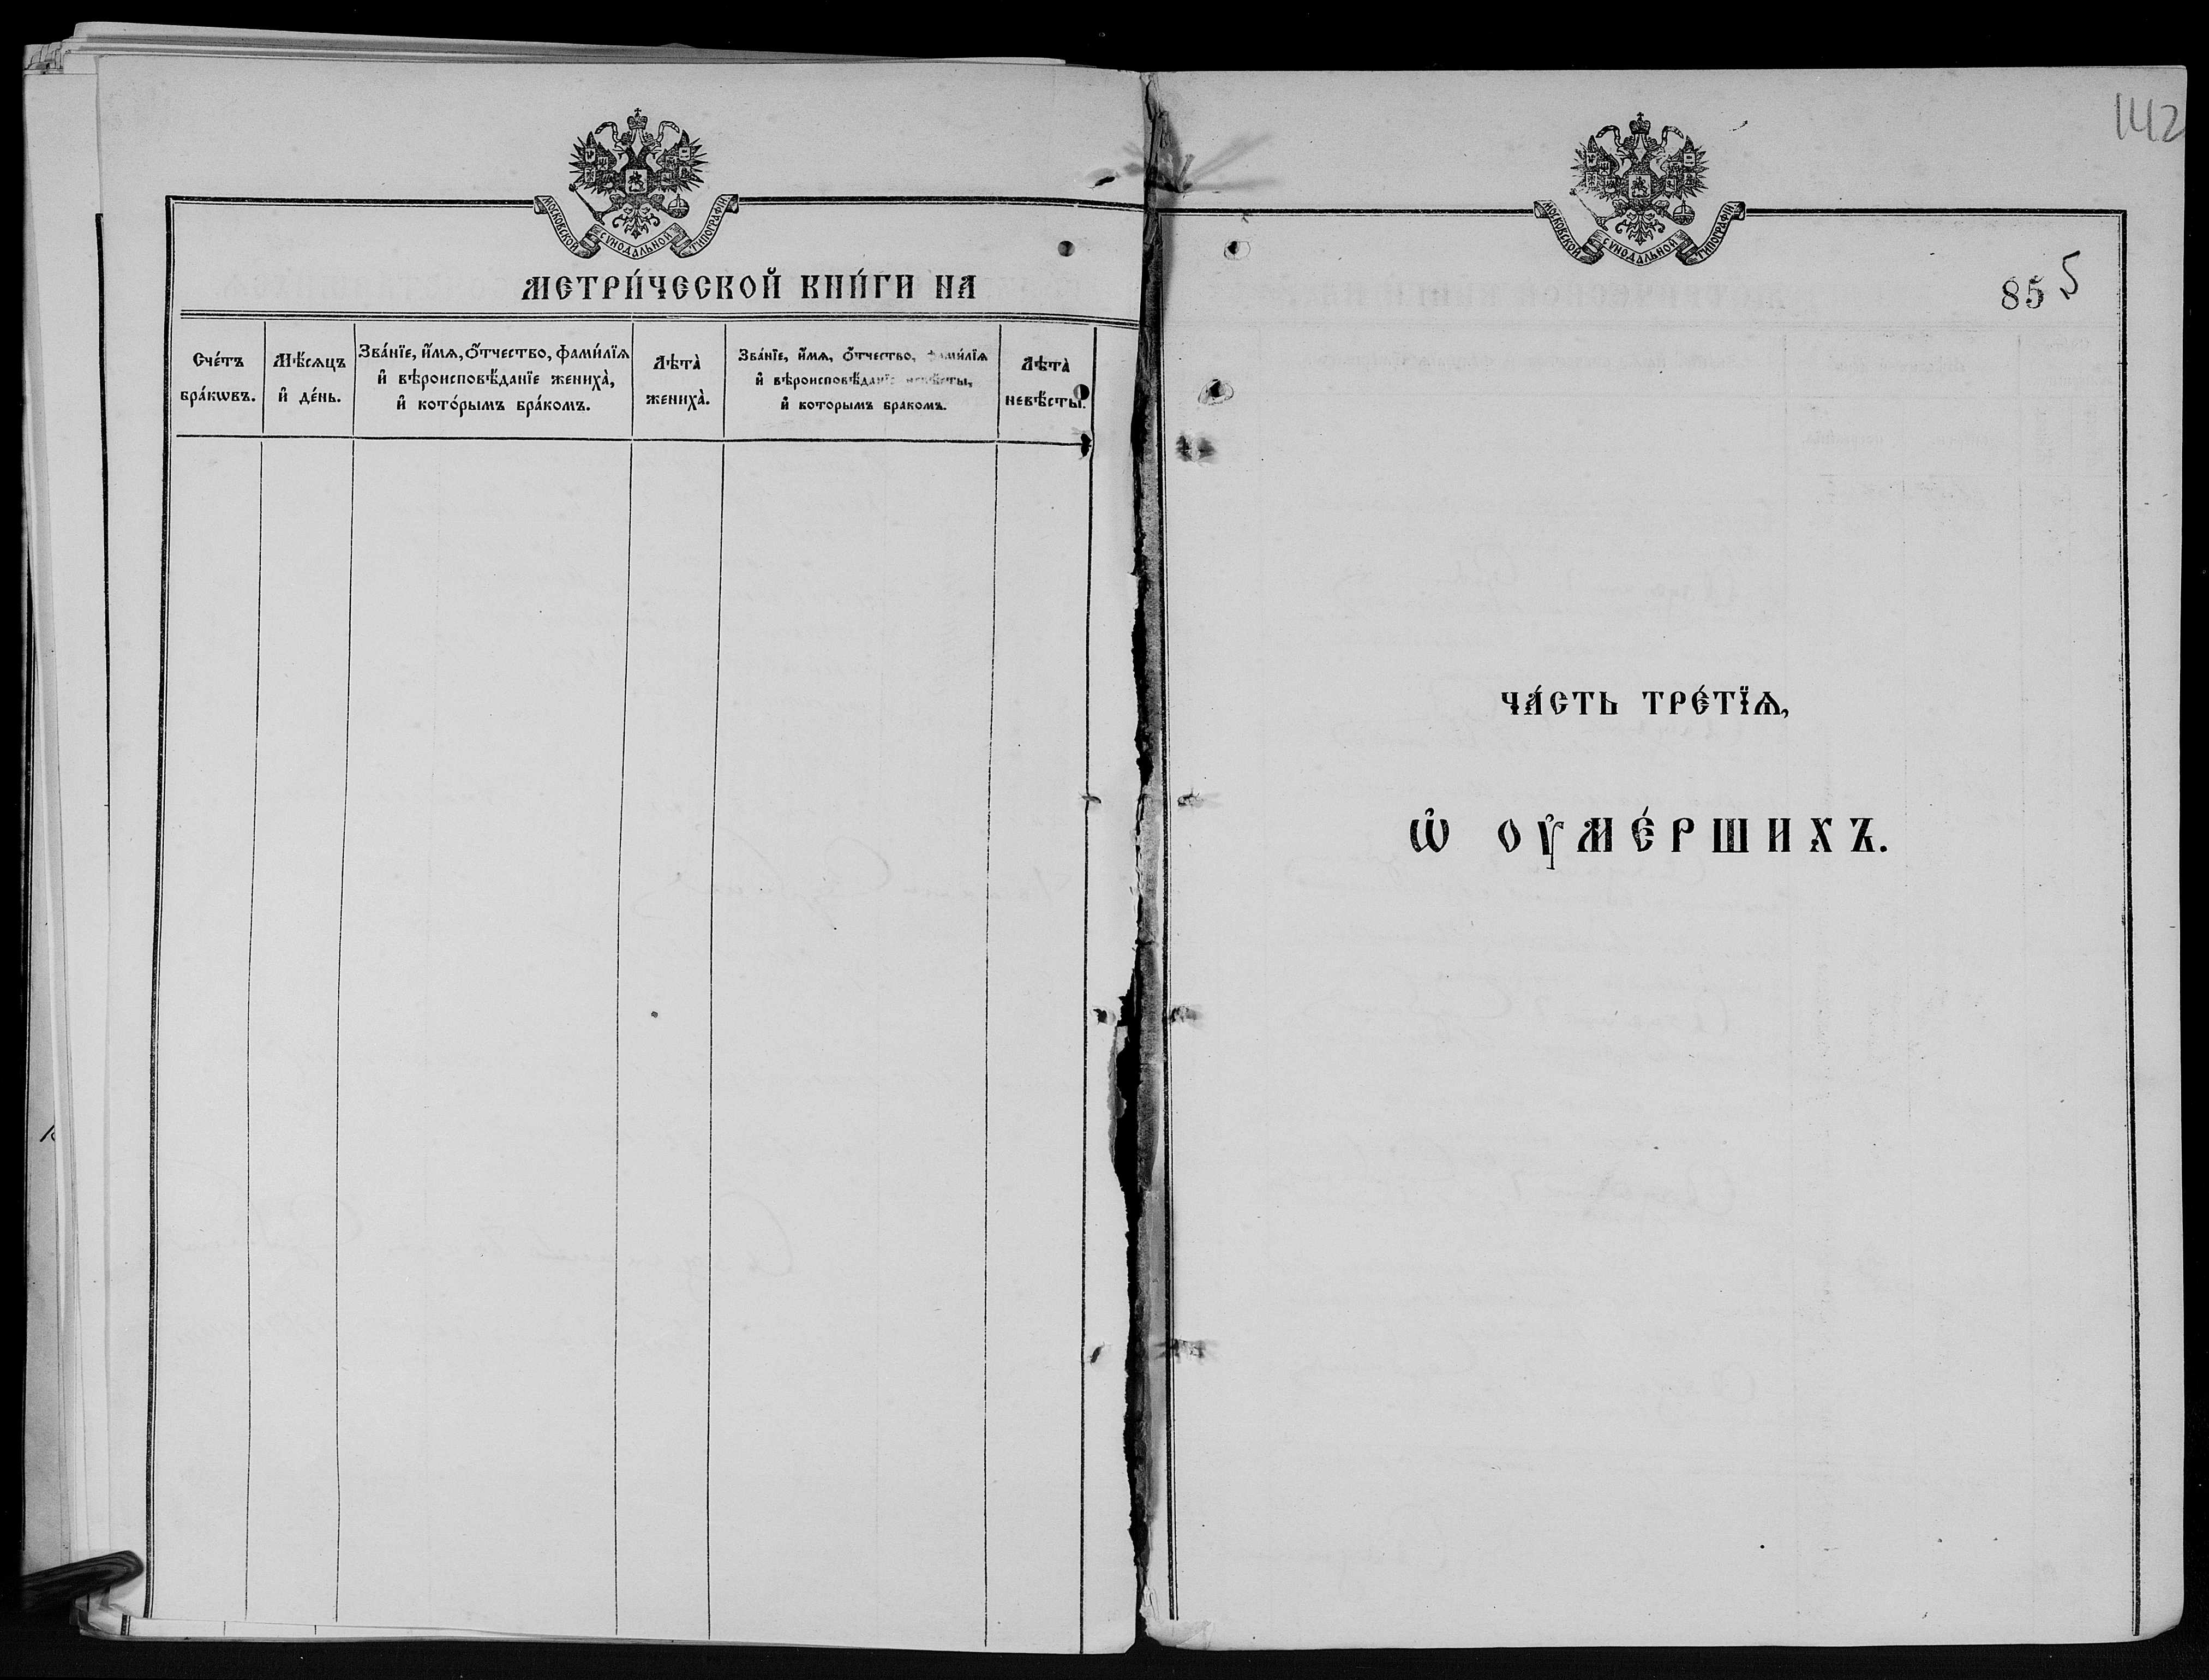 МОСКОВСКОЙ СѴНОДАЛЬНОЙ ТИПОГРАФІИ
МЕТРИ́ЧЕСКОЙ КНИ́ГИ НА
Сче́тъ
бра́кѡвъ.
Мѣ́сѧцъ
и҆ де́нь.
Зва́нїе, и҆́мѧ, ѻ҆́тчество, фами́лїѧ
и҆ вѣроисповѣ́данїе жениха̀,
и҆ кото́рымъ бра́комъ.
Лѣта̀
жениха̀.
Зва́нїе, и҆́мѧ, ѻ҆́тчество, фами́лїѧ
и҆ вѣроисповѣ́данїе невѣ́сты,
и҆ которымъ бракомъ.
Лѣта̀
невѣ́сты.
142
МОСКОВСКОЙ СѴНОДАЛЬНОЙ ТИПОГРАФІИ
855
ЧА́СТЬ ТРЕ́ТЇѦ,
Ѡ҆ ОУ҆МЕ́РШИХЪ.